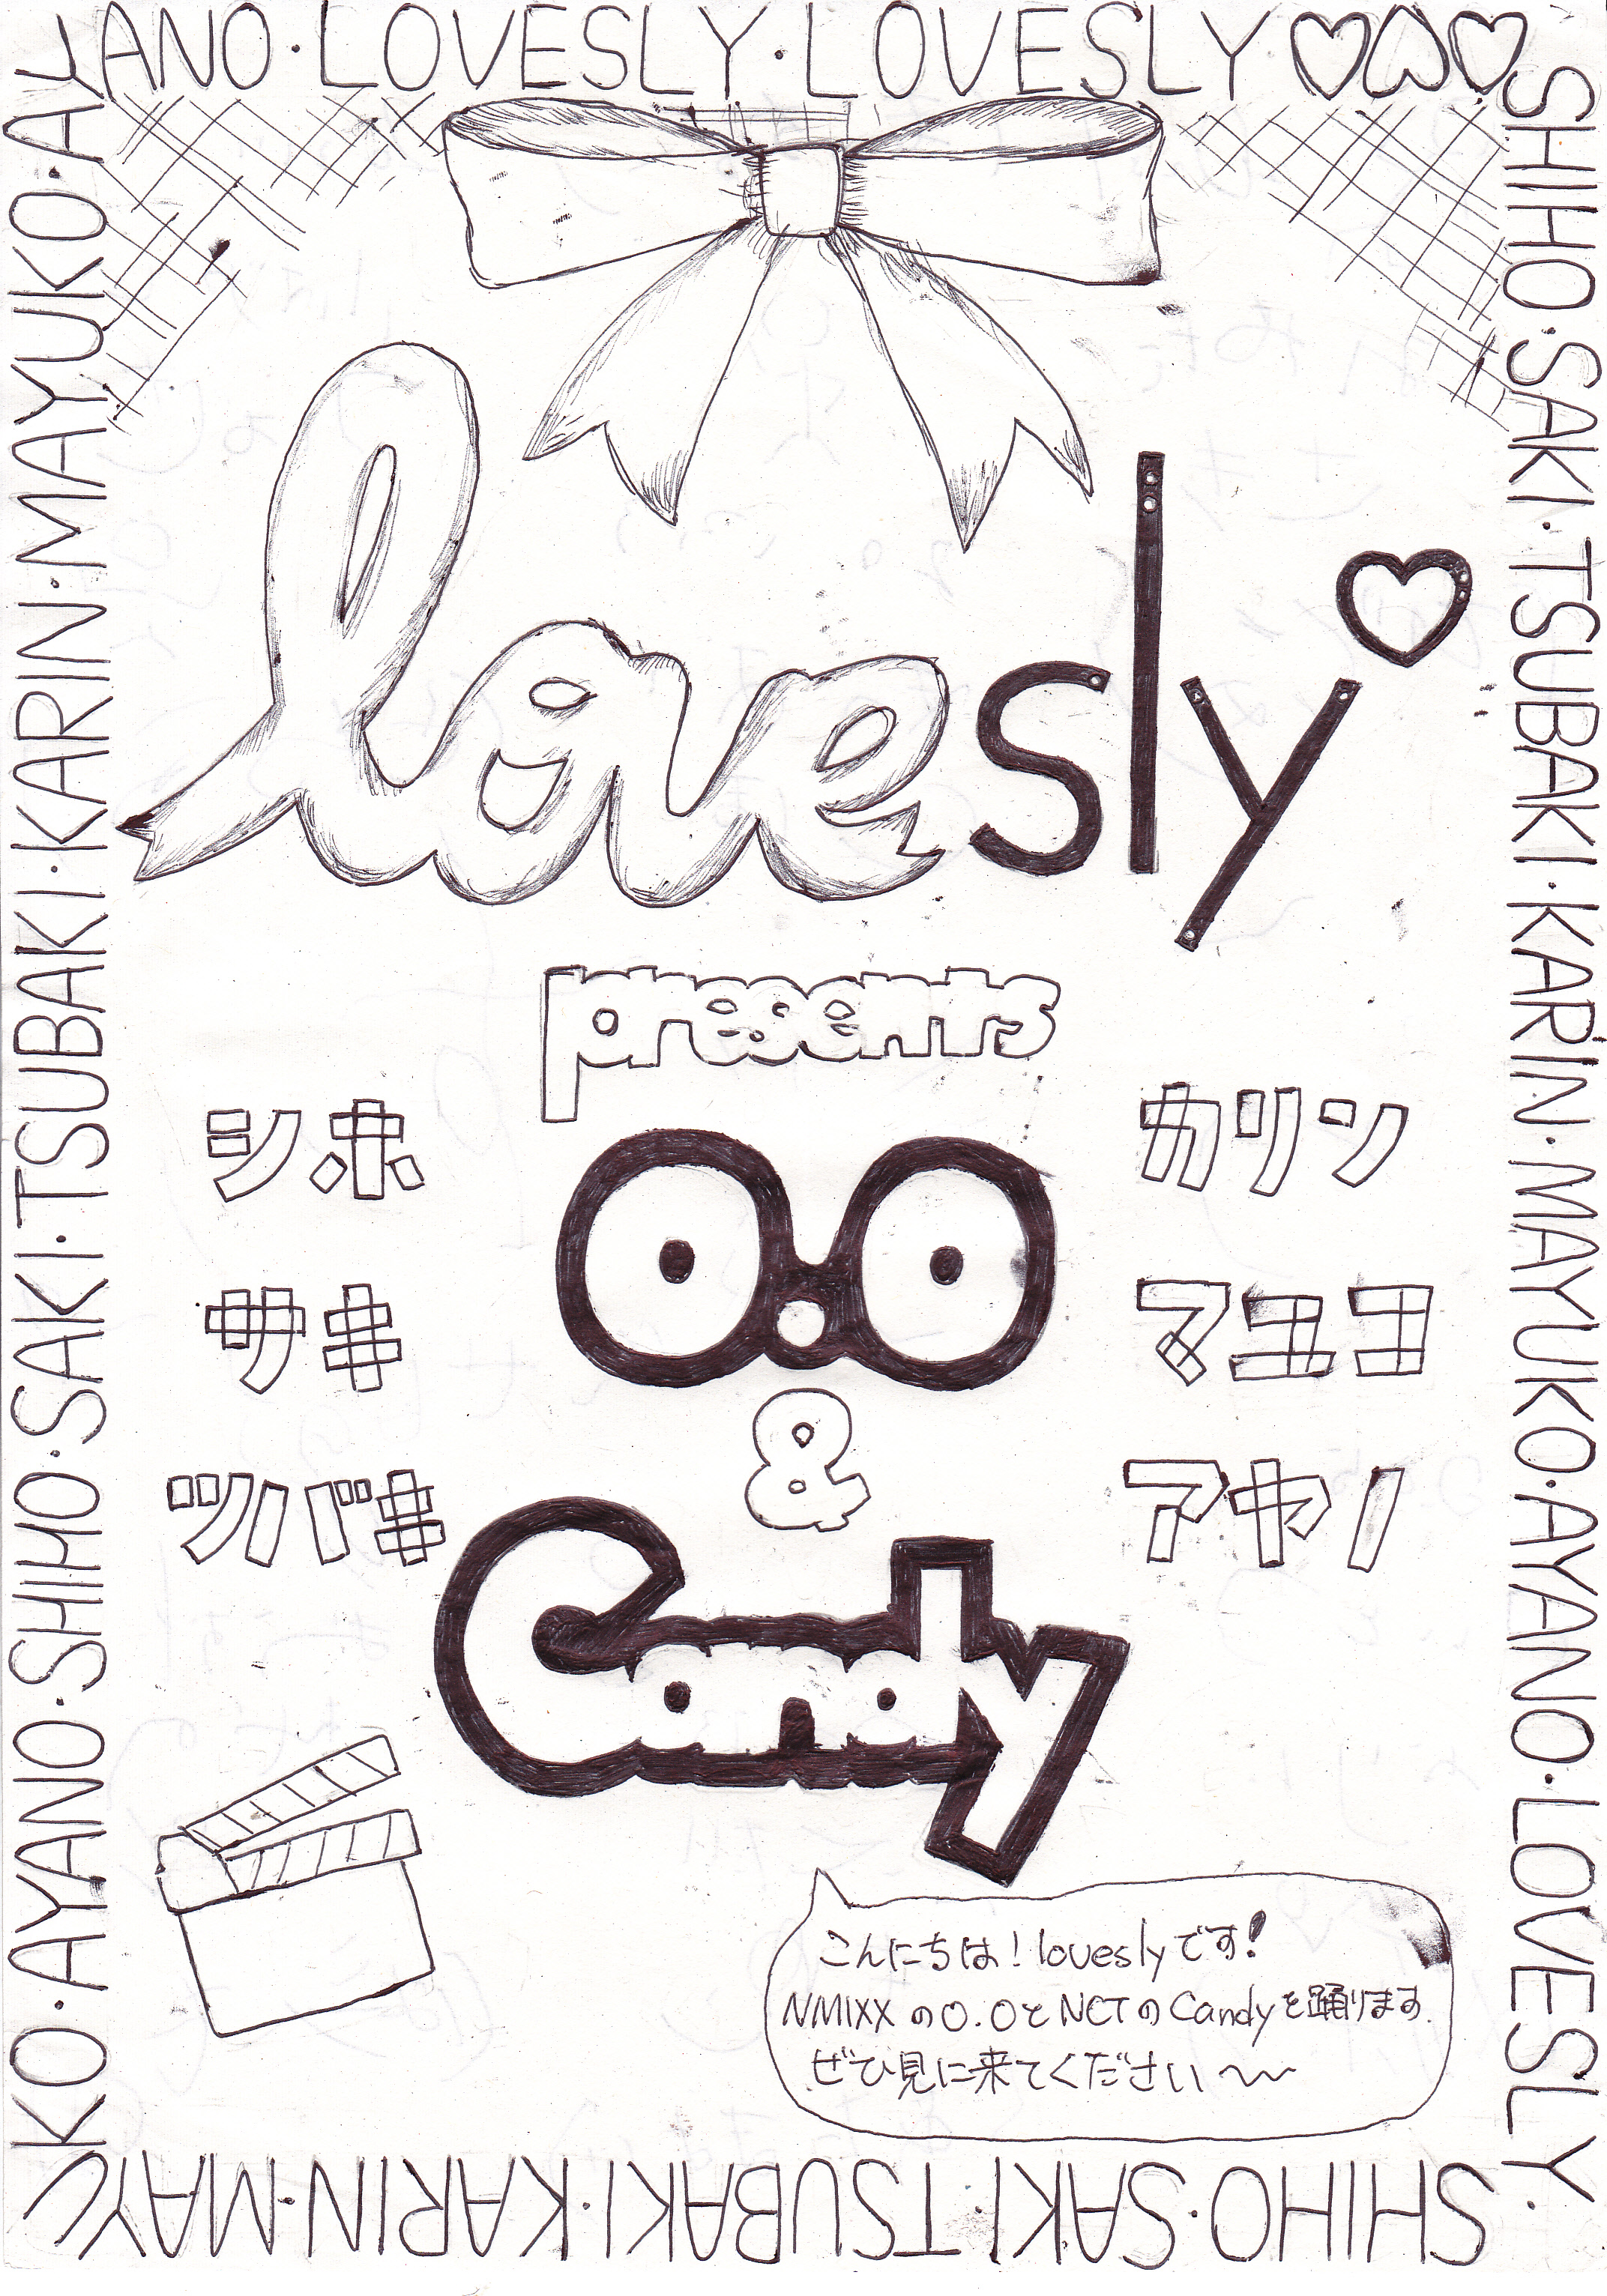 AYANO・LOVESLY・LOVESLY♡♡♡
SHIHO・SAKI・TSUBAKI・KARIN・MAYUKO・AYANO・LOVESLY・
SHIHO・SAKI・TSUBAKI・KARIN・MAYU
KO・AYANO・SHIHO・SAKI・TSUBAKI・KARIN・MAYUKO・
lovesly♡
presents
シホ
サキ
ツバキ
O.O
&
Candy
カリン
マユコ
アヤノ
こんにちは！loveslyです！
NMIXXのO.OとNCTのCandyを踊ります
ぜひ見に来てください〜〜